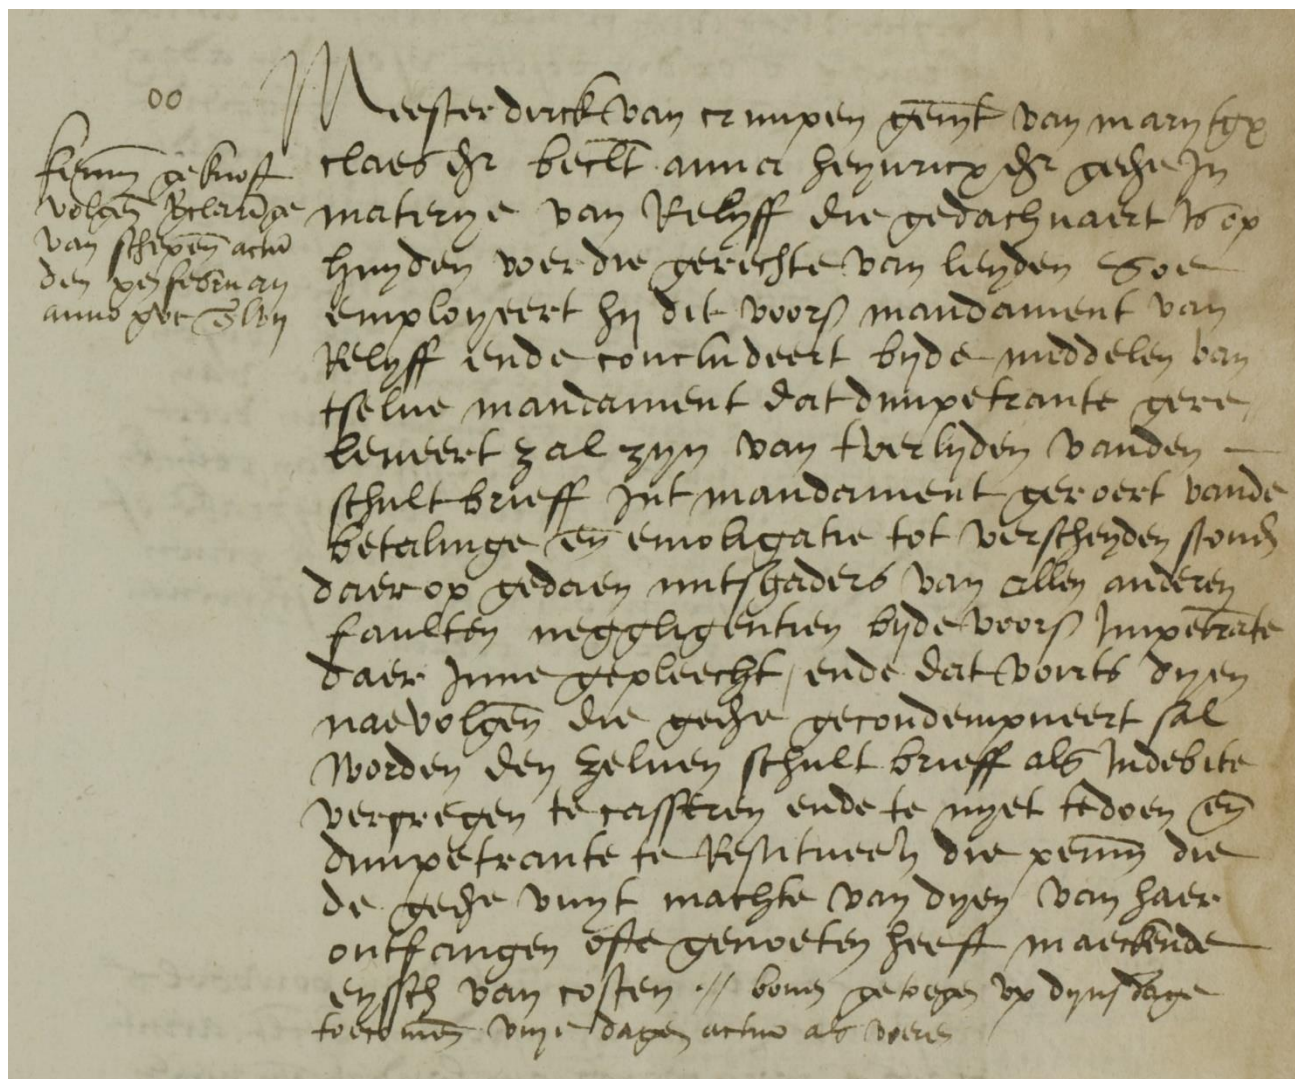 oo
geknoft
volgen
van schepen actu
den februarij
anno
Meester dirck van crimpen gemt van marytgx
claes dr beclt anna heynricx dr gedhe In
materye van Relyff die gedachvaert is op
huyden voer die gerechte van leyden Soe
employeert hij dit voors mandament van
Relyff ende concludeert bijde middelen van
tselve mandament dat dimpetrante gere
leveert zal zijn van tverlyden vanden
schult brieff Int mandament geroert vande
betalinge en obligatie tot verscheyden stonden
daer op gedaen mitsgaders van allen anderen
faulten neggligentien bijde voors Impetrate
daer Inne gepleecht / ende dat voirts dyen
naevolgen die gedhe gecondempneert sal
worden den zelven schult brieff als Indebite
vercregen te casseren ende te nyet te doen en
dimpetrante te Restitueren die penn die
de gedhe vuyt machte van dyen van haer
ontfangen ofte genoeten heeft maeckende
eyssch van costen // getoegen up dynsdage
toecomen dagen actum als voeren